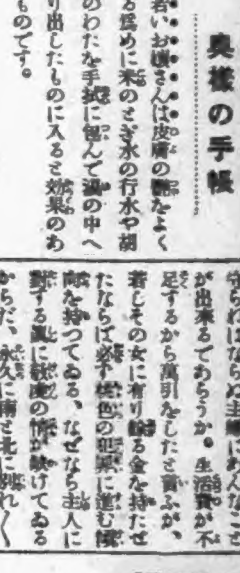 奥様の手帳
若いお嬢さんは皮膚の艶をよく
る為めに米のとぎ水の行水や胡
のわたを手拭に包んで湯の中へ
り出したものに入ると効果のあ
ものです。
守らればならぬ主婦にあんなこと
が出来るであらうか。生活費が不
足するから萬引をしたと言ふが、
若しその女に有り餘る金を持たせ
たならば必ず桃色の犯罪に進む傾
向を持つてゐる、なぜなら主人に
對する誠に救度の情が缺けてゐる
からだ、永久に南と北に別れ〳〵